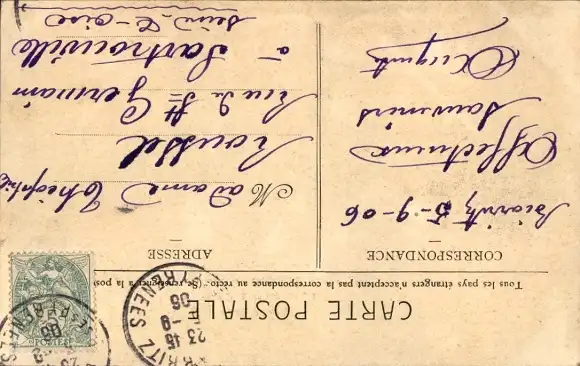 CARTE POSTALE
Tous les pays étrangers n'acceptent pas la correspondance au recto. (Se renseigner à la pos
CORRESPONDANCE
Biarritz 5-9-06
Affectueux
souvenirs
Auguste
ADRESSE
Madame Théophile
Roussel
Rue de St Germain
à Sartrouville
Seine & Oise
PYRENEES
23 45
5-9
06
POSTES